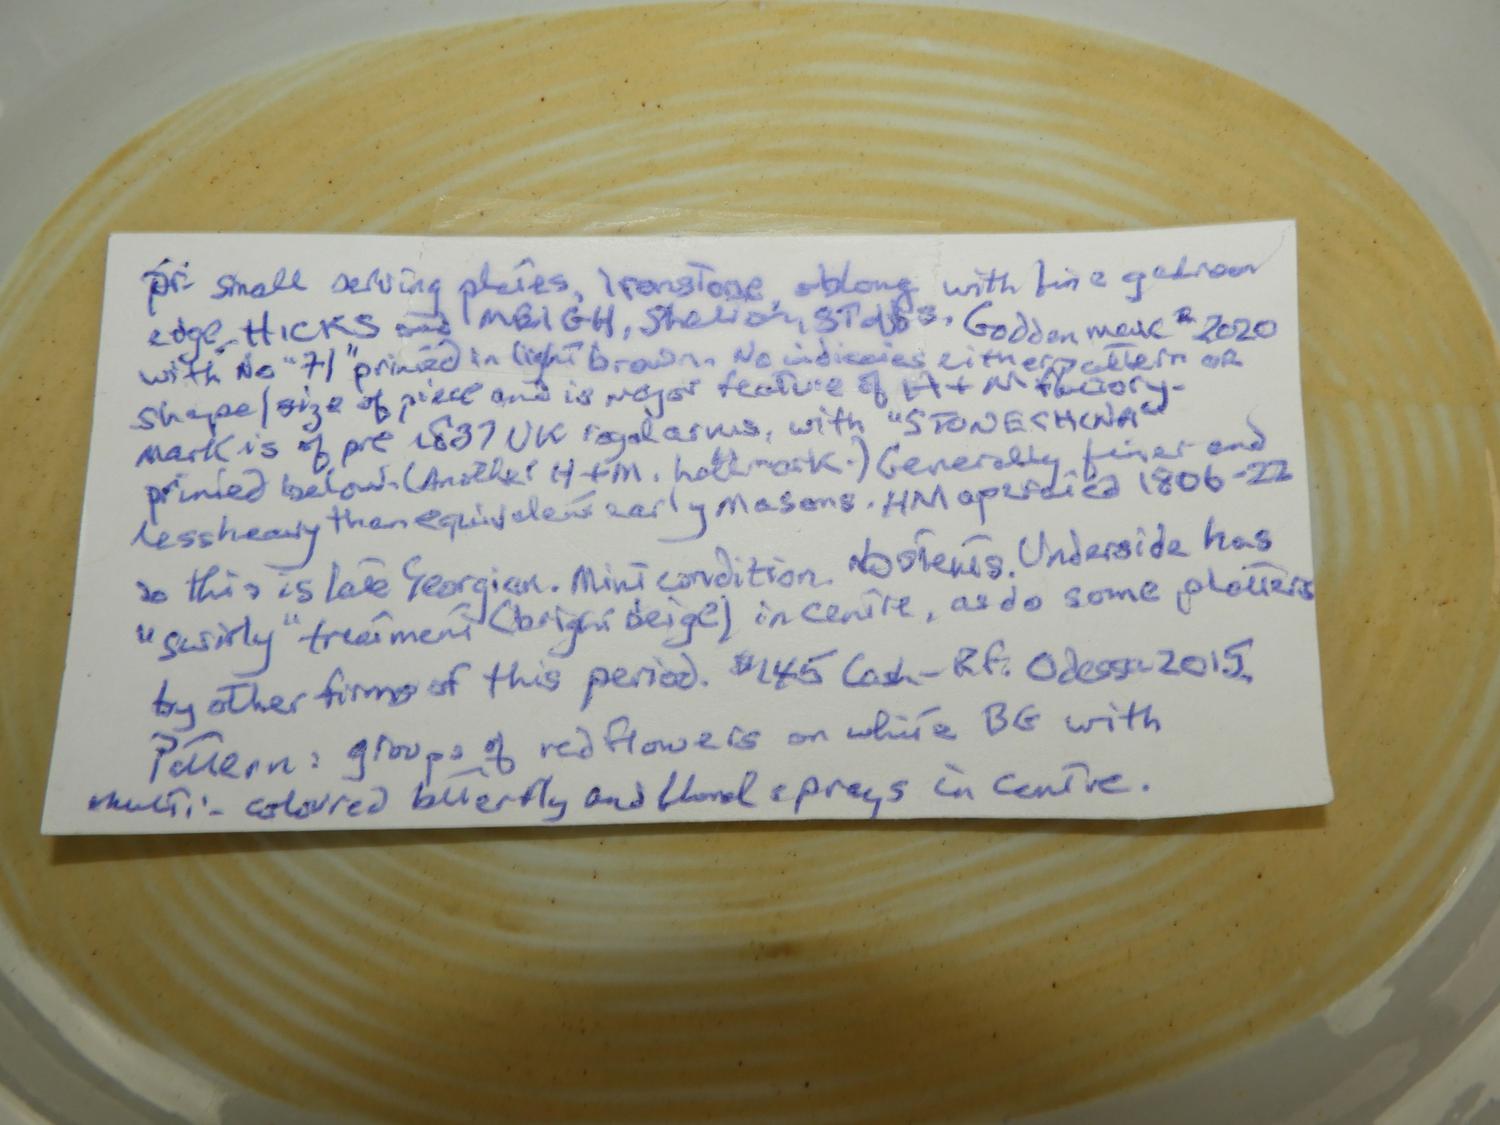 pr. small serving plates, Ironstone, oblong with fine gadroon
edge. HICKS and MEIGH, Shelton, Staffs. Godden mark 2020
with No "71" printed in light brown. No indicates either pattern OR
shape/size of piece and is major feature of H+M factory.
Mark is of pre 1837 UK royal arms, with "STONE CHINA"
printed below. (Another H+M. hallmark.) Generally finer and
less heavy than equivalent early Masons. HM operated 1806-22
so this is late Georgian. Mint condition. No stems. Underside has
"swirly" treatment (bright beige) in centre, as do some platters
by other firms of this period. $145 Cash - R.F. Odessa 2015.
Pattern: groups of red flowers on white BG with
multi:- coloured butterfly and floral sprays in centre.